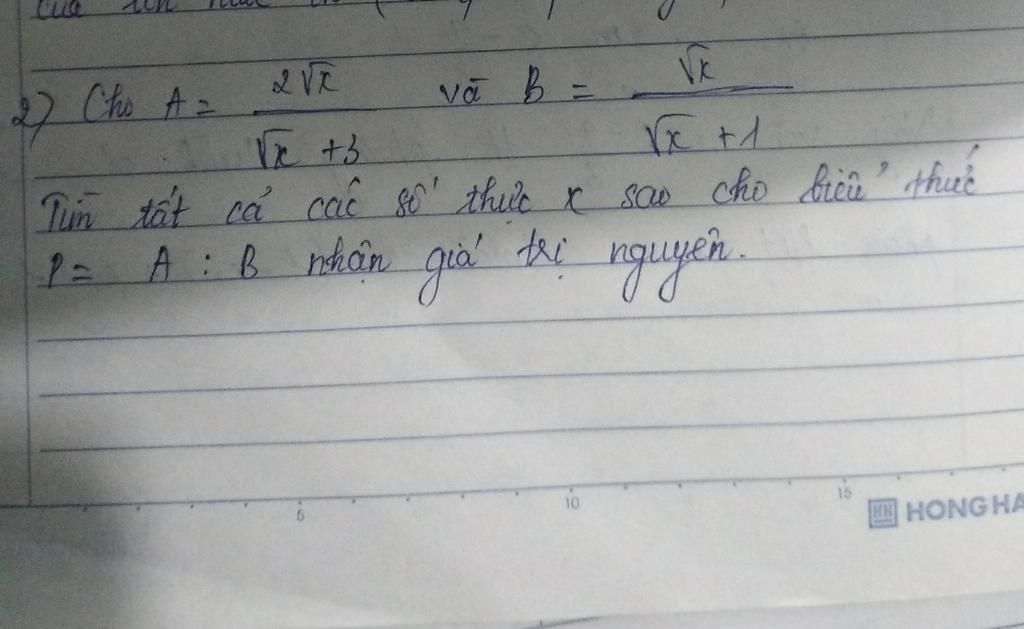 của
2) Cho A = 2√x / (√x + 3) và B = √x / (√x + 1)
Tìm tất cả các số thực x sao cho biểu thức
P = A : B nhận giá trị nguyên.
5 10 15
HONG HA